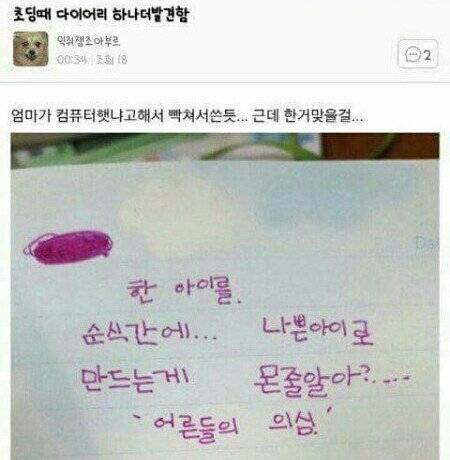 초딩때 다이어리 하나더발견함
익쥐쟁조아부르
00:34 조회 18
2
엄마가 컴퓨터햇냐고해서 빡쳐서쓴듯... 근데 한거맞을걸...
한 아이를.
순식간에... 나쁜아이로
만드는게 몬줄알아?....
'어른들의 의심.'